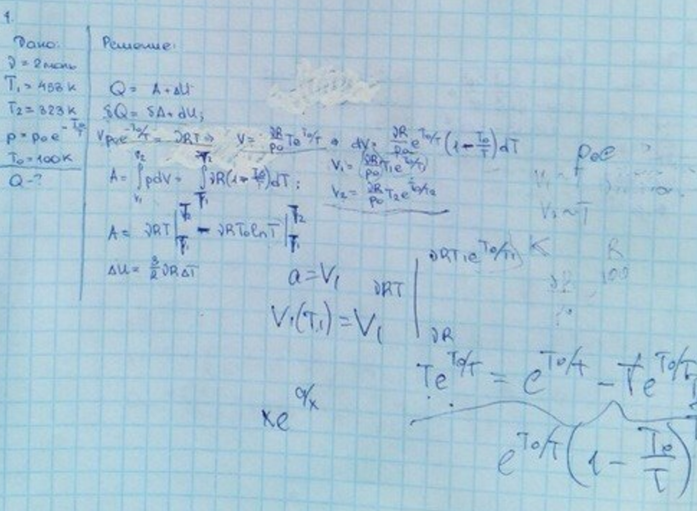 1.
Дано:
Решение:
ν = 2 моль
T₂ = 323 K
p = p₀e^{-T₀/T}
T₀ = 100 K
Q - ?
Q = A + ΔU
δQ = δA + dU;
Vp₀e^{-T₀/T} = νRT ⇒ V = νR/p₀ Te^{T₀/T} ⇒ dV = νR/p₀ e^{T₀/T} (1 - T₀/T) dT
V₁ = (νR/p₀ T₁e^{T₀/T₁})
V₂ = νR/p₀ T₂e^{T₀/T₂}
A = ∫_{V₁}^{V₂} pdV = ∫_{T₁}^{T₂} νR(1 - T₀/T) dT;
A = νRT |_{T₁}^{T₂} - νRT₀ lnT |_{T₁}^{T₂}
ΔU = 3/2 νRΔT
p₀e
V₂ ~ T
a = V₁
V₁(T₁) = V₁
νRT
νRT₁e^{T₀/T₁}
νR
K R
100
xe^{a/x}
Te^{T₀/T} = e^{T₀/T} - Te^{T₀/T}
e^{T₀/T} (1 - T₀/T)